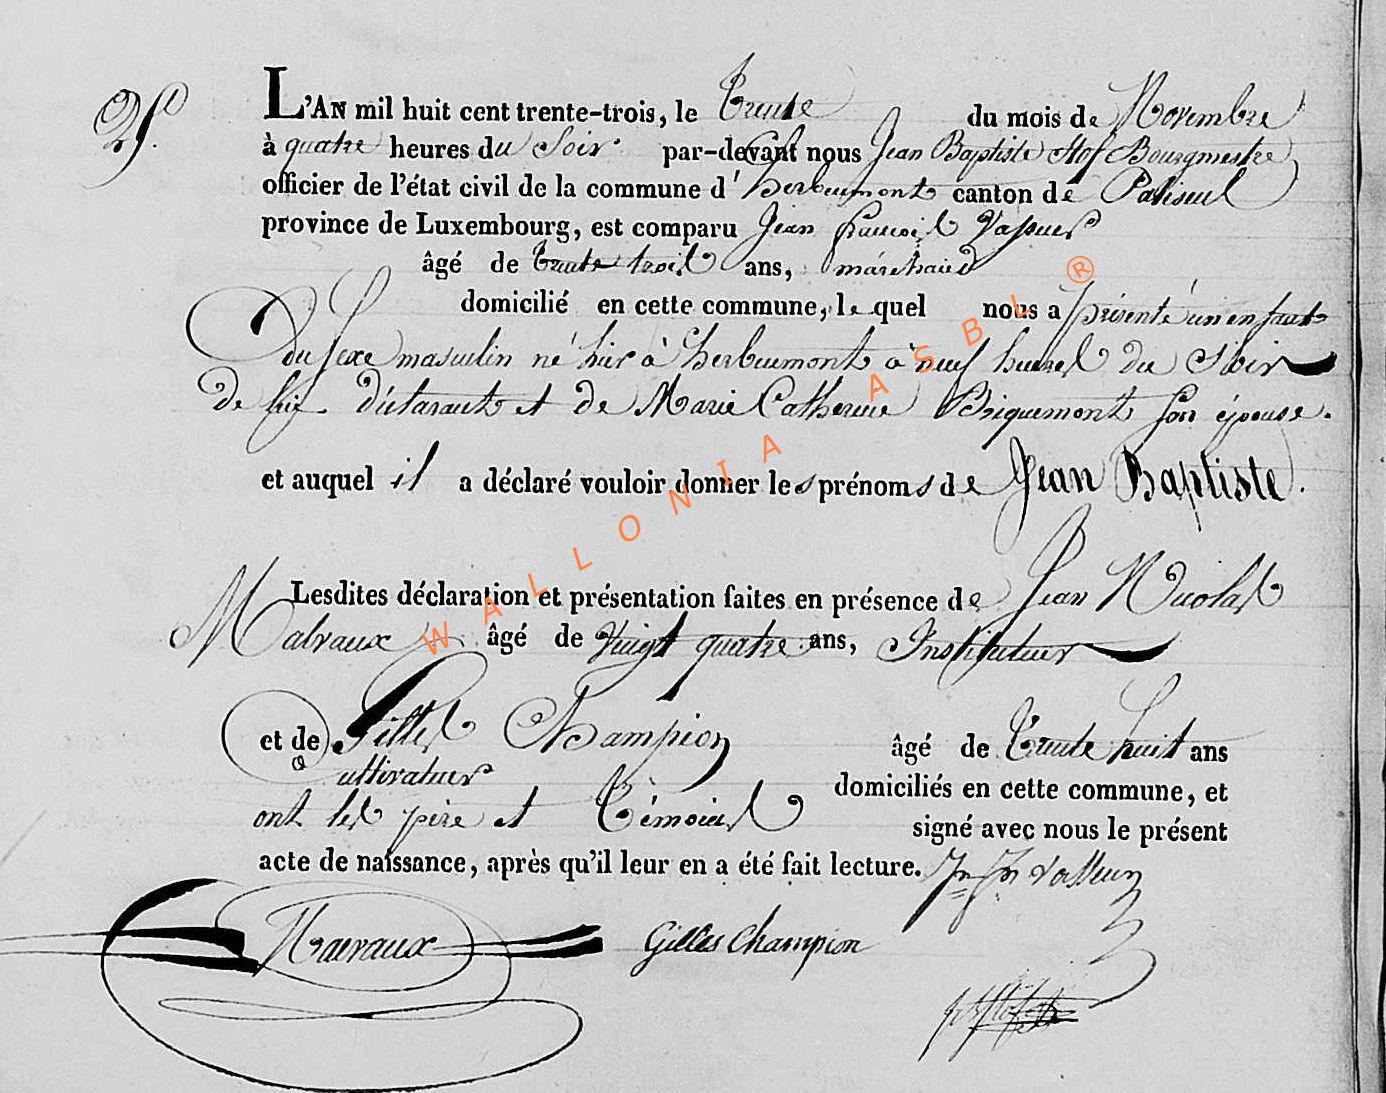 25.
L'AN mil huit cent trente-trois, le Trente du mois de Novembre
à quatre heures du Soir par-devant nous Jean Baptiste Hof Bourgmestre
officier de l'état civil de la commune d'herbeumont canton de Paliseul
province de Luxembourg, est comparu Jean francois Vasseur
âgé de trente trois ans, maréchaud
domicilié en cette commune, le quel nous a présenté un enfant
du sexe masculin né hier à herbeumont à neuf heures du Soir
de lui déclarant et de Marie Catherine Briquemont son épouse.
et auquel il a déclaré vouloir donner les prénoms de Jean Baptiste.
Lesdites déclaration et présentation faites en présence de Jean Nicolas
Malvaux âgé de vingt quatre ans, Instituteur
et de Gilles Champion âgé de Trente huit ans
Cultivateur domiciliés en cette commune, et
ont les père et Témoins signé avec nous le présent
acte de naissance, après qu'il leur en a été fait lecture. Jn Fs Vasseur
Malvaux Gilles Champion
WALLONIA ASBL ®